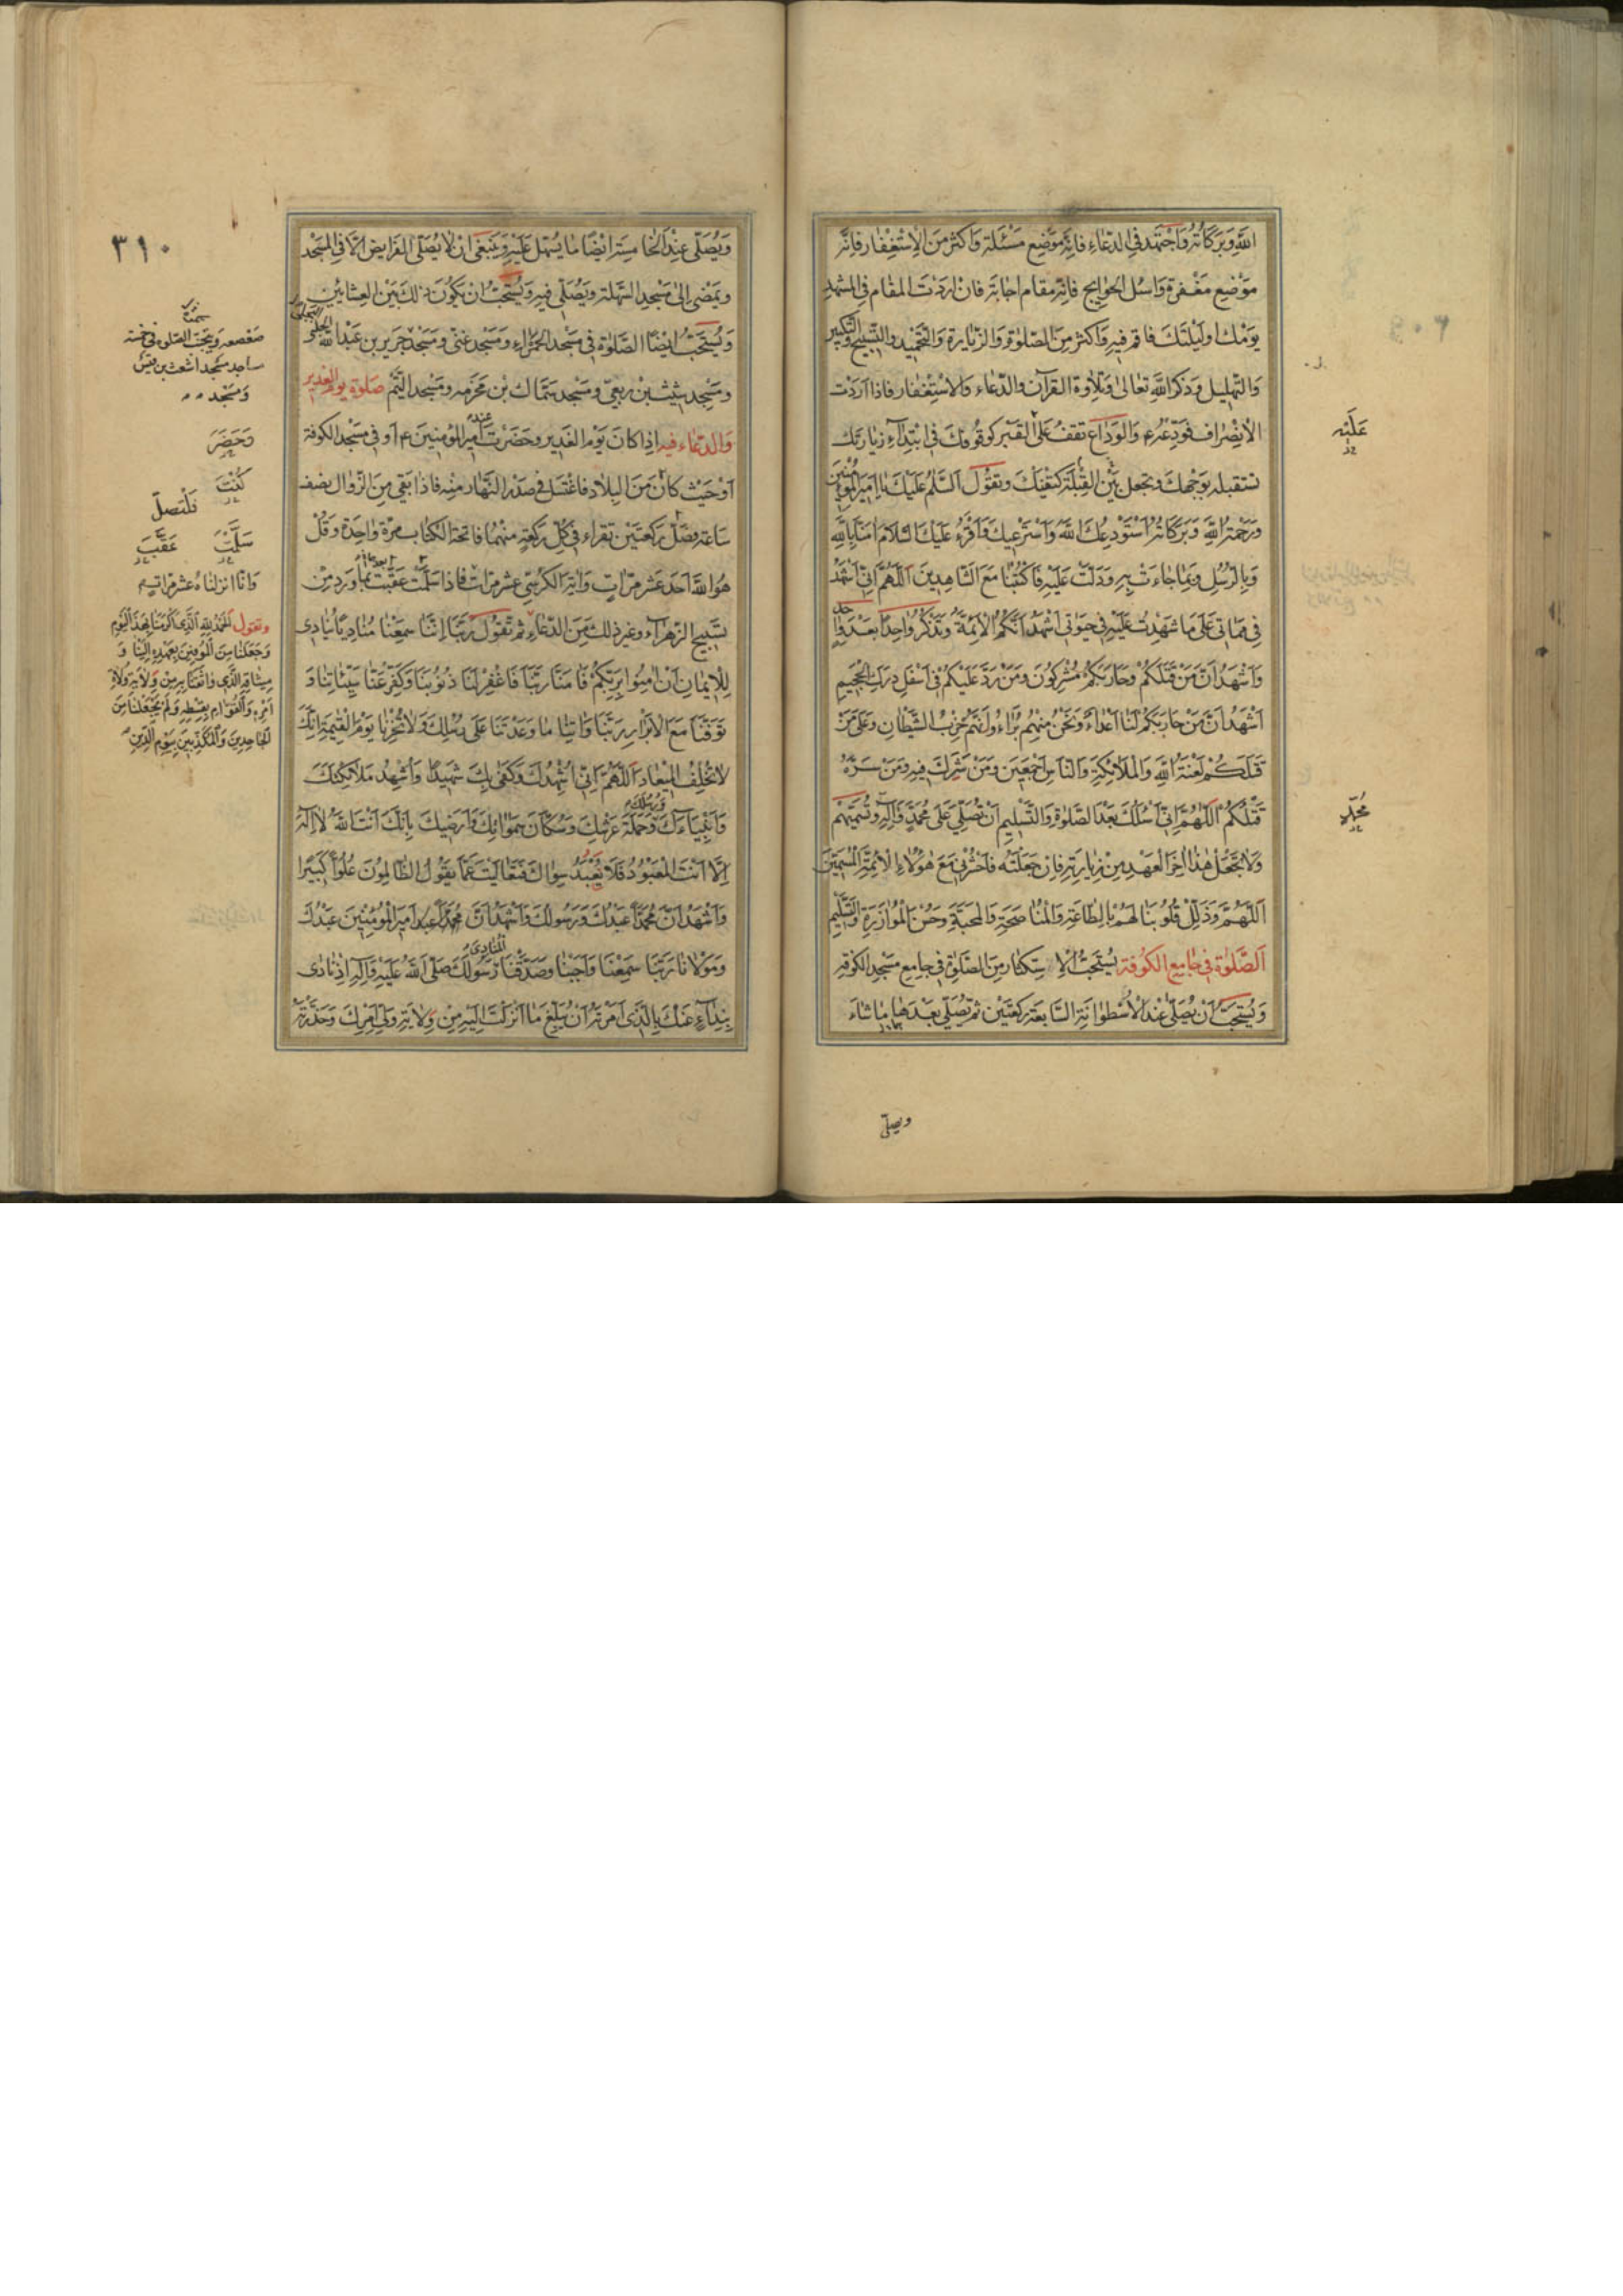 اللهِ وَبَرَكاتُهُ وَاجْتَهِد فِي الدّعاءِ فانّه مَوْضِع مَسْئَلَة وَاكثر مِنَ الاِسْتِغْفار فانّه
مَوْضِع مَغْفِرة وَاسْئل الحوايج فانّه مقام اجابَة فان اردْتَ المقام فِي المشهدِ
يَوْمك او لَيْلَتكَ فاقم فيهِ وَاكثر مِنَ الصّلوةِ وَالزّيارة وَالتّحْميد والتّسبيح وَالتّكبير
وَالتّهليل وَذكر اللّهِ تعالى وَتلاوة القرآن والدّعاء وَالاسْتِغْفار فاذا اَرَدْت
الانصِراف فودّعهُ ع وَالوَداع تقفُ عَلَى القَبْر كوقُوفكَ فِي ابْتِداءِ زيارتك
تستقبله بوَجْهك وتجعل القِبْلَة بَيْنَ كَتِفَيْكَ وتقوُل اَلسَّلمُ عَلَيْكَ يا اَميرَ المؤْمِنينَ
وَرَحْمَة اللهِ وَبَرَكاتُهُ اَسْتَوْدِعُكَ اللهَ وَاَسْتَرْعيكَ وَاَقْرَءُ عَلَيْكَ السّلامَ امَنّا بِاللهِ
وَبِالرّسُلِ وَبِما جاءَتْ بِهِ وَدَلّتْ عَلَيْهِ فَاكْتُبْنا مَعَ الشّاهِدينَ اَللّهُمَّ اِنّي اَشْهَدُ
في مَماتي عَلى ما شَهِدْتُ عَلَيْهِ في حَيوتي اَشْهَدُ اَنَّكُم الأئِمَّةُ وَتذْكُر واحِداً بَعْدَ واحِدٍ
وَاَشْهَدُ اَنَّ مَنْ قَتَلَكُمْ وَحارَبَكُمْ مُشْرِكُونَ وَمَنْ رَدَّ عَلَيْكُمْ في اَسْفَلِ دَرَكِ الجَحيمِ
اَشْهَدُ اَنَّ مَنْ حارَبَكُمْ لَنا اَعْداءٌ وَنَحْنُ مِنْهُم بُراءُ وَاَنَّهُمْ حِزْبُ الشَّيْطانِ وَعَلى مَنْ
قَتَلَكُمْ لَعْنَةُ اللهِ وَالمَلائِكَةِ وَالنّاسِ اَجْمَعينَ وَمَنْ شَرِكَ فيهِ وَمَنْ سَرَّهُ
قَتْلُكُمْ اَللّهُمَّ اِنّي اَسْئَلُكَ بَعْدَ الصَّلوةِ وَالتَّسْليمِ اَنْ تُصَلِّيَ عَلى مُحَمَّدٍ وَآلِهِ وَتُسَمّيهِمْ
وَلا تَجْعَلْ هذا اخِرَ العَهْدِ مِنْ زِيارَتِهِ فَاِنْ جَعَلْتَهُ فَاحْشُرْني مَعَ هؤُلاءِ الأئِمَّةِ المُسَمّينَ
اَللّهُمَّ وَذَلِّلْ قُلُوبَنا لَهُمْ بِالطّاعَةِ وَالمُناصَحَةِ وَالمَحَبَّةِ وَحُسْنِ المُوازَرَةِ وَالتَّسْليمِ
اَلصَّلوة في جامِع الكوُفَة يُسْتَحَبُّ الاِسْتِكثار مِنَ الصَّلوةِ في جامِع مَسْجِد الكوفة
وَيُسْتَحَبُّ اَنْ تُصَلّي عِنْدَ الأُسْطوانَةِ السّابعَة رَكعَتَيْن ثمّ تُصَلّي بَعْدَها ما شاءَ
عَلَيْه
مُحَمَّد
ويصلّي
٣١٠
وَيُصَلّي عِنْدَ الخامِسَة ايْضاً ما يُسَهّل عَليْهِ وَيَنْبَغي انْ لا يُصَلّي الفرَايض الاّ فِي المَسْجِد
ويَمْضي اِلى مَسْجِد السَّهْلة ويُصَلّي فيهِ وَيُسْتَحَبّ ان يَكوُنَ ذلكَ بَيْن العِشائَيْنِ
وَيُسْتَحَبُّ ايْضاً الصَّلوة في مَسْجِد الحَمْراءِ وَمَسْجِد غني وَمَسْجِد جَرير بن عَبْد اللهِ البجلي
ومَسْجِد شَبَث بن رِبْعيّ ومَسْجد سَمّاك بْن مَخْرَمه ومَسْجد التَّيْم صَلوة يوْم الغَدير
وَالدّعاء فيه اِذا كانَ يَوْم الغَدير وحَضَرْتَ عِنْد اَميرِ المؤمِنينَ ع اَوْ في مَسْجد الكوفة
اَوْ حَيْث كانَ مِنَ البِلاد فاغْتسل في صَدْر النَّهار منه فاذا بَقيَ مِنَ الزّوال نصْف
سَاعَة فصَلّ رَكعَتَيْن تَقرَاء في كلّ رَكعَةٍ منْهُما فاتحَة الكتاب مرّة واحِدَة وَقُلْ
هُوَ اللهُ اَحَد عَشر مَرّاتٍ وَايَة الكُرْسِيّ عشر مرّات فاذا سَلَّمْت عَقّبت بَعْدهما بما وَرَدَ مِنْ
تَسْبيح الزّهْراء وغير ذلك مِنَ الدّعاء ثم تقول رَبَّنا اِنَّنا سَمِعْنا مُنادِياً يُنادي
لِلْايمانِ اَنْ امِنُوا بِرَبِّكُمْ فَامَنّا رَبَّنا فَاغْفِرْ لَنا ذُنوُبَنا وَكَفِّرْ عَنّا سَيِّئاتِنا وَ
تَوَفَّنا مَعَ الأبْرارِ رَبَّنا وَاتِنا ما وَعَدْتَنا عَلى رُسُلِكَ وَلا تُخْزِنا يَوْمَ القِيمَةِ اِنَّكَ
لا تُخْلِفُ الميعادَ اَللّهُمَّ اِنّي اُشْهِدُكَ وَكَفى بِكَ شَهيداً وَاُشْهِدُ مَلائِكَتَكَ
وَاَنْبِياءَكَ وَرُسُلَكَ وَحَمَلَةَ عَرْشِكَ وَسُكّانَ سَمواتِكَ وَاَرْضيكَ بِاَنَّكَ اَنْتَ اللهُ لا اِلهَ
اِلاّ اَنْتَ المَعْبُودُ فَلا يُعْبَدُ سِواكَ فَتَعالَيْتَ عَمّا يَقوُلُ الظّالِموُنَ عُلُوّاً كَبيراً
وَاَشْهَدُ اَنَّ مُحَمَّداً عَبْدُكَ وَرَسُولُكَ وَاَشْهَدُ اَنَّ اَميرَ المُؤْمِنينَ عَبْدُكَ
وَمَوْلانا رَبَّنا سَمِعْنا وَاَجَبْنا وَصَدَّقْنَا المُنادِيَ رَسُولَكَ صَلَّى اللهُ عَلَيْهِ وَآلِهِ اِذْ نادى
بِنِداءٍ عَنْكَ بِالَّذي اَمَرْتَهُ اَنْ يُبَلِّغَ ما اَنْزَلْتَ اِلَيْهِ مِنْ وِلايَةِ وَلِيِّ اَمْرِكَ وَحَذَّرْتَهُ
وَحَضَرَ
كُنْتَ
فَلْتصلّ
سَلَّمْتَ عَقَّبَ
وَانّا انزلناهُ عشر مرّاتٍ
وتقول اَلحَمْدُ للهِ الَّذي اَكْرَمَنا بِهذَا اليَوْمِ
وَجَعَلَنا مِنَ المُوفينَ بِعَهْدِهِ اِلَيْنا وَ
ميثاقِهِ الَّذي واثَقَنا بِهِ مِنْ وِلايَةِ وُلاةِ
اَمْرِهِ وَالقُوّامِ بِقِسْطِهِ وَلَمْ يَجْعَلْنا مِنَ
الجاحِدينَ وَالمُكَذِّبينَ بِيَوْمِ الدّينِ